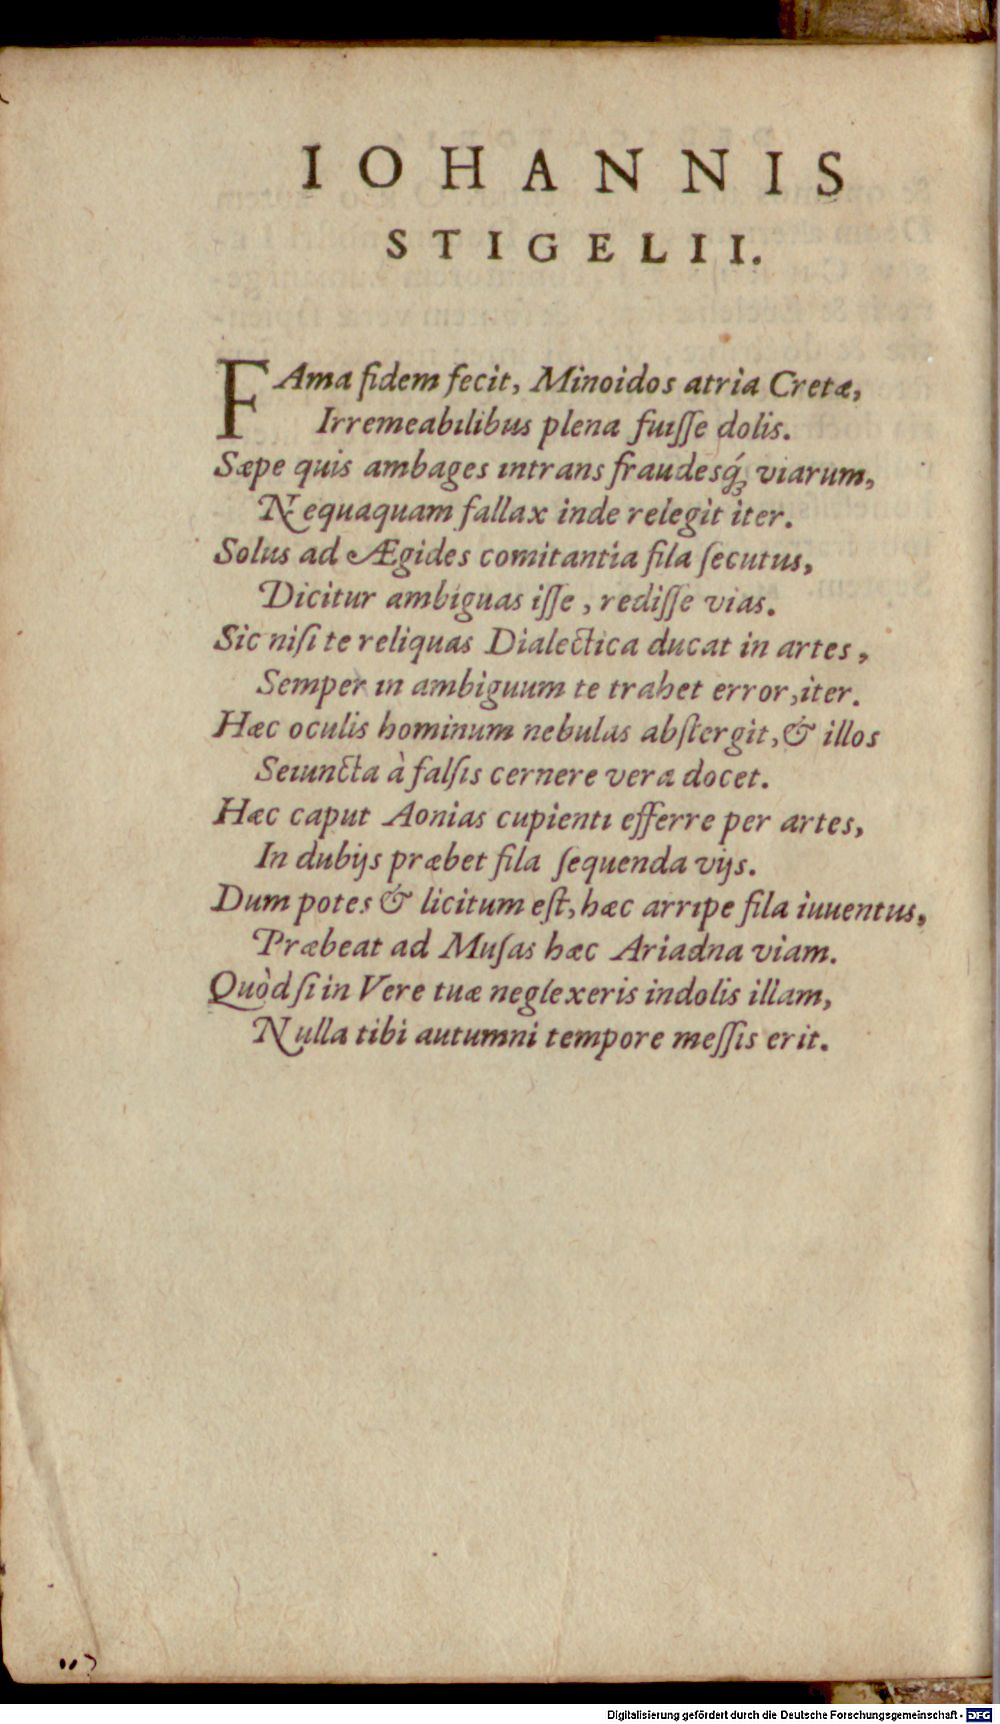 IOHANNIS
STIGELII.
FAma fidem fecit, Minoidos atria Cretæ,
Irremeabilibus plena fuiſſe dolis.
Sæpe quis ambages intrans fraudesq́ꝫ viarum,
Nequaquam fallax inde relegit iter.
Solus ad Ægides comitantia fila ſecutus,
Dicitur ambiguas iſſe, rediſſe vias.
Sic niſi te reliquas Dialectica ducat in artes,
Semper in ambiguum te trahet error, iter.
Hæc oculis hominum nebulas abſtergit, & illos
Seiuncta à falſis cernere vera docet.
Hæc caput Aonias cupienti efferre per artes,
In dubijs præbet fila ſequenda vijs.
Dum potes & licitum eſt, hæc arripe fila iuuentus,
Præbeat ad Muſas hæc Ariadna viam.
Quòd ſi in Vere tuæ neglexeris indolis illam,
Nulla tibi autumni tempore meſſis erit.
Digitalisierung gefördert durch die Deutsche Forschungsgemeinschaft - DFG